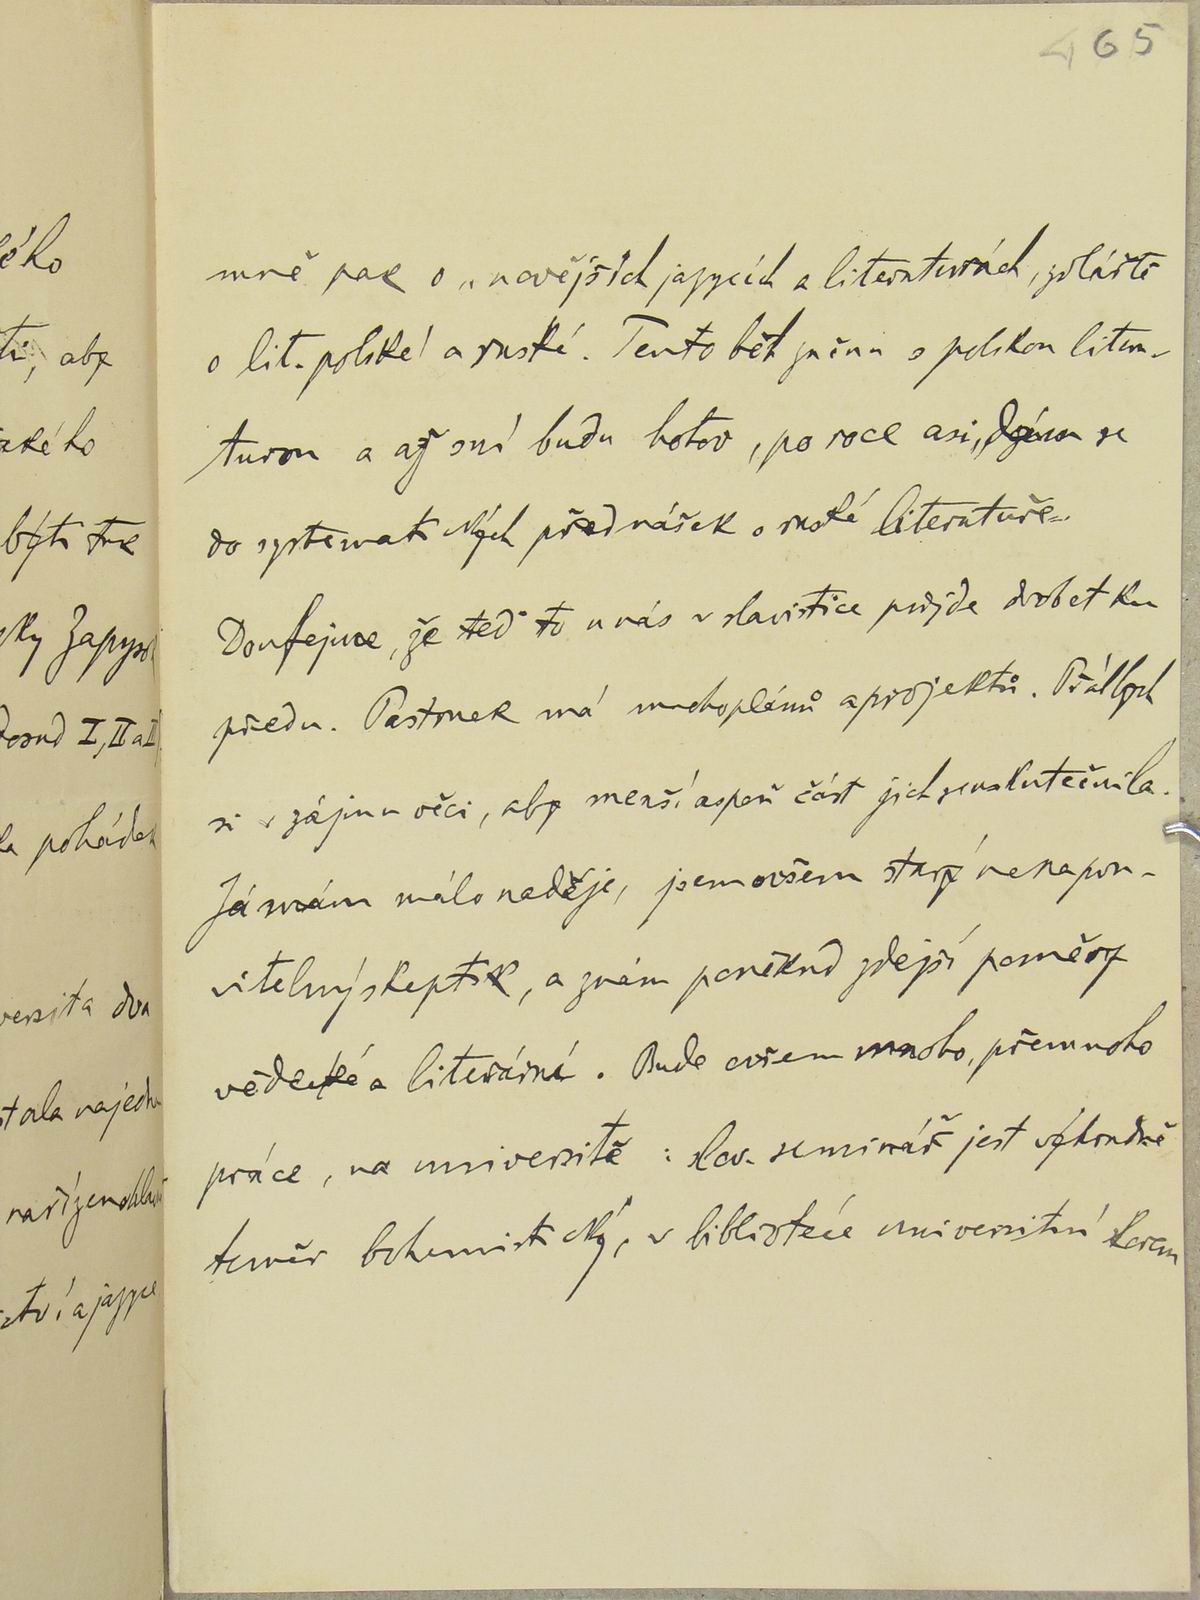 465
mně pak o „novějších jazycích a literaturách, zvláště
o lit. polské a ruské. Tento běh začnu s polskou litera-
turou a až s ní budu hotov, po roce asi, dám se
do systematických přednášek o ruské literatuře.
Doufejme, že teď to u nás v slavistice půjde drobet ku
předu. Pastrnek má mnoho plánů a projektů. Přál bych
si v zájmu věci, aby menší aspoň část jich se uskutečnila.
Já mám málo naděje, jsem ovšem starý nenapra-
vitelný skeptik, a znám poněkud zdejší poměry
vědecké a literární. Bude ovšem mnoho, přemnoho
práce, na universitě: slav. seminář jest výhradně
téměř bohemistický, v bibliotéce universitní skoro
ého
ti, aby
ského
býti tak
sky Zapysk
Dosud I, II a II
la pohádek
versita dva
stala najednu
nařízeno
ctví a jazyce